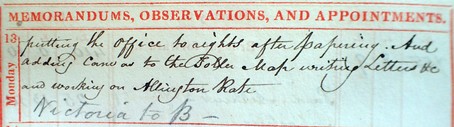 MEMORANDUMS, OBSERVATIONS, AND APPOINTMENTS.
13
Monday
putting the office to rights after papering. And
adding canvas to the Map writing Letters &c
and working on Allington Rate
Victoria to B—